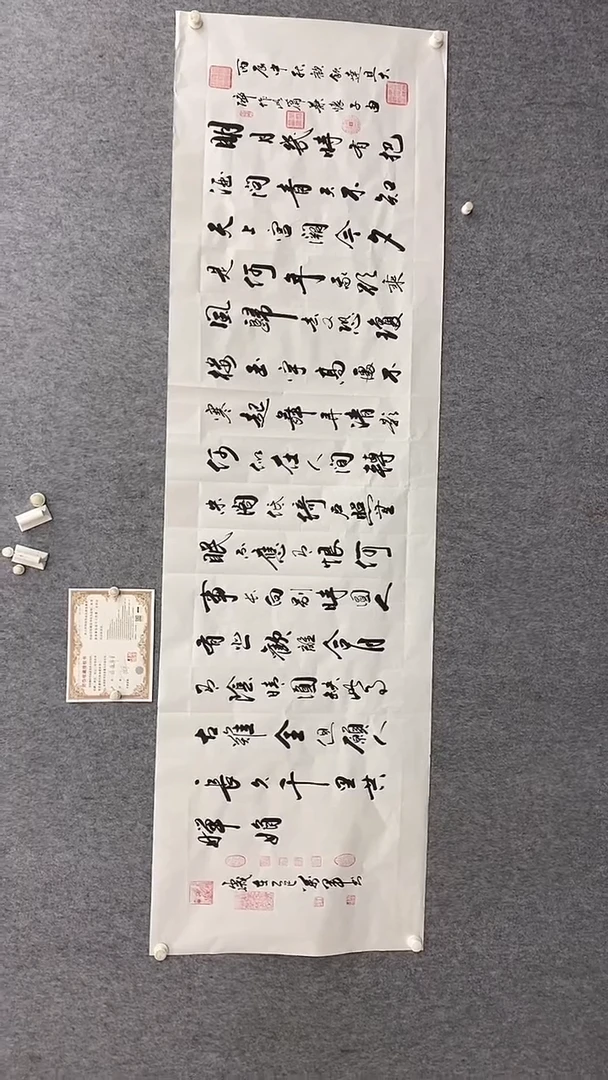 丙辰中秋歡飲達旦大
醉作此篇兼懷子由
明月幾時有把
酒問青天不知
天上宮闕今夕
是何年我欲乘
風歸去又恐瓊
樓玉宇高處不
寒起舞弄清影
何似在人間轉
朱閣低綺戶照無
眠不應有恨何
事長向別時圓人
有悲歡離合月
有陰晴圓缺此事
古難全但願人
長久千里共
嬋娟
歲在乙巳